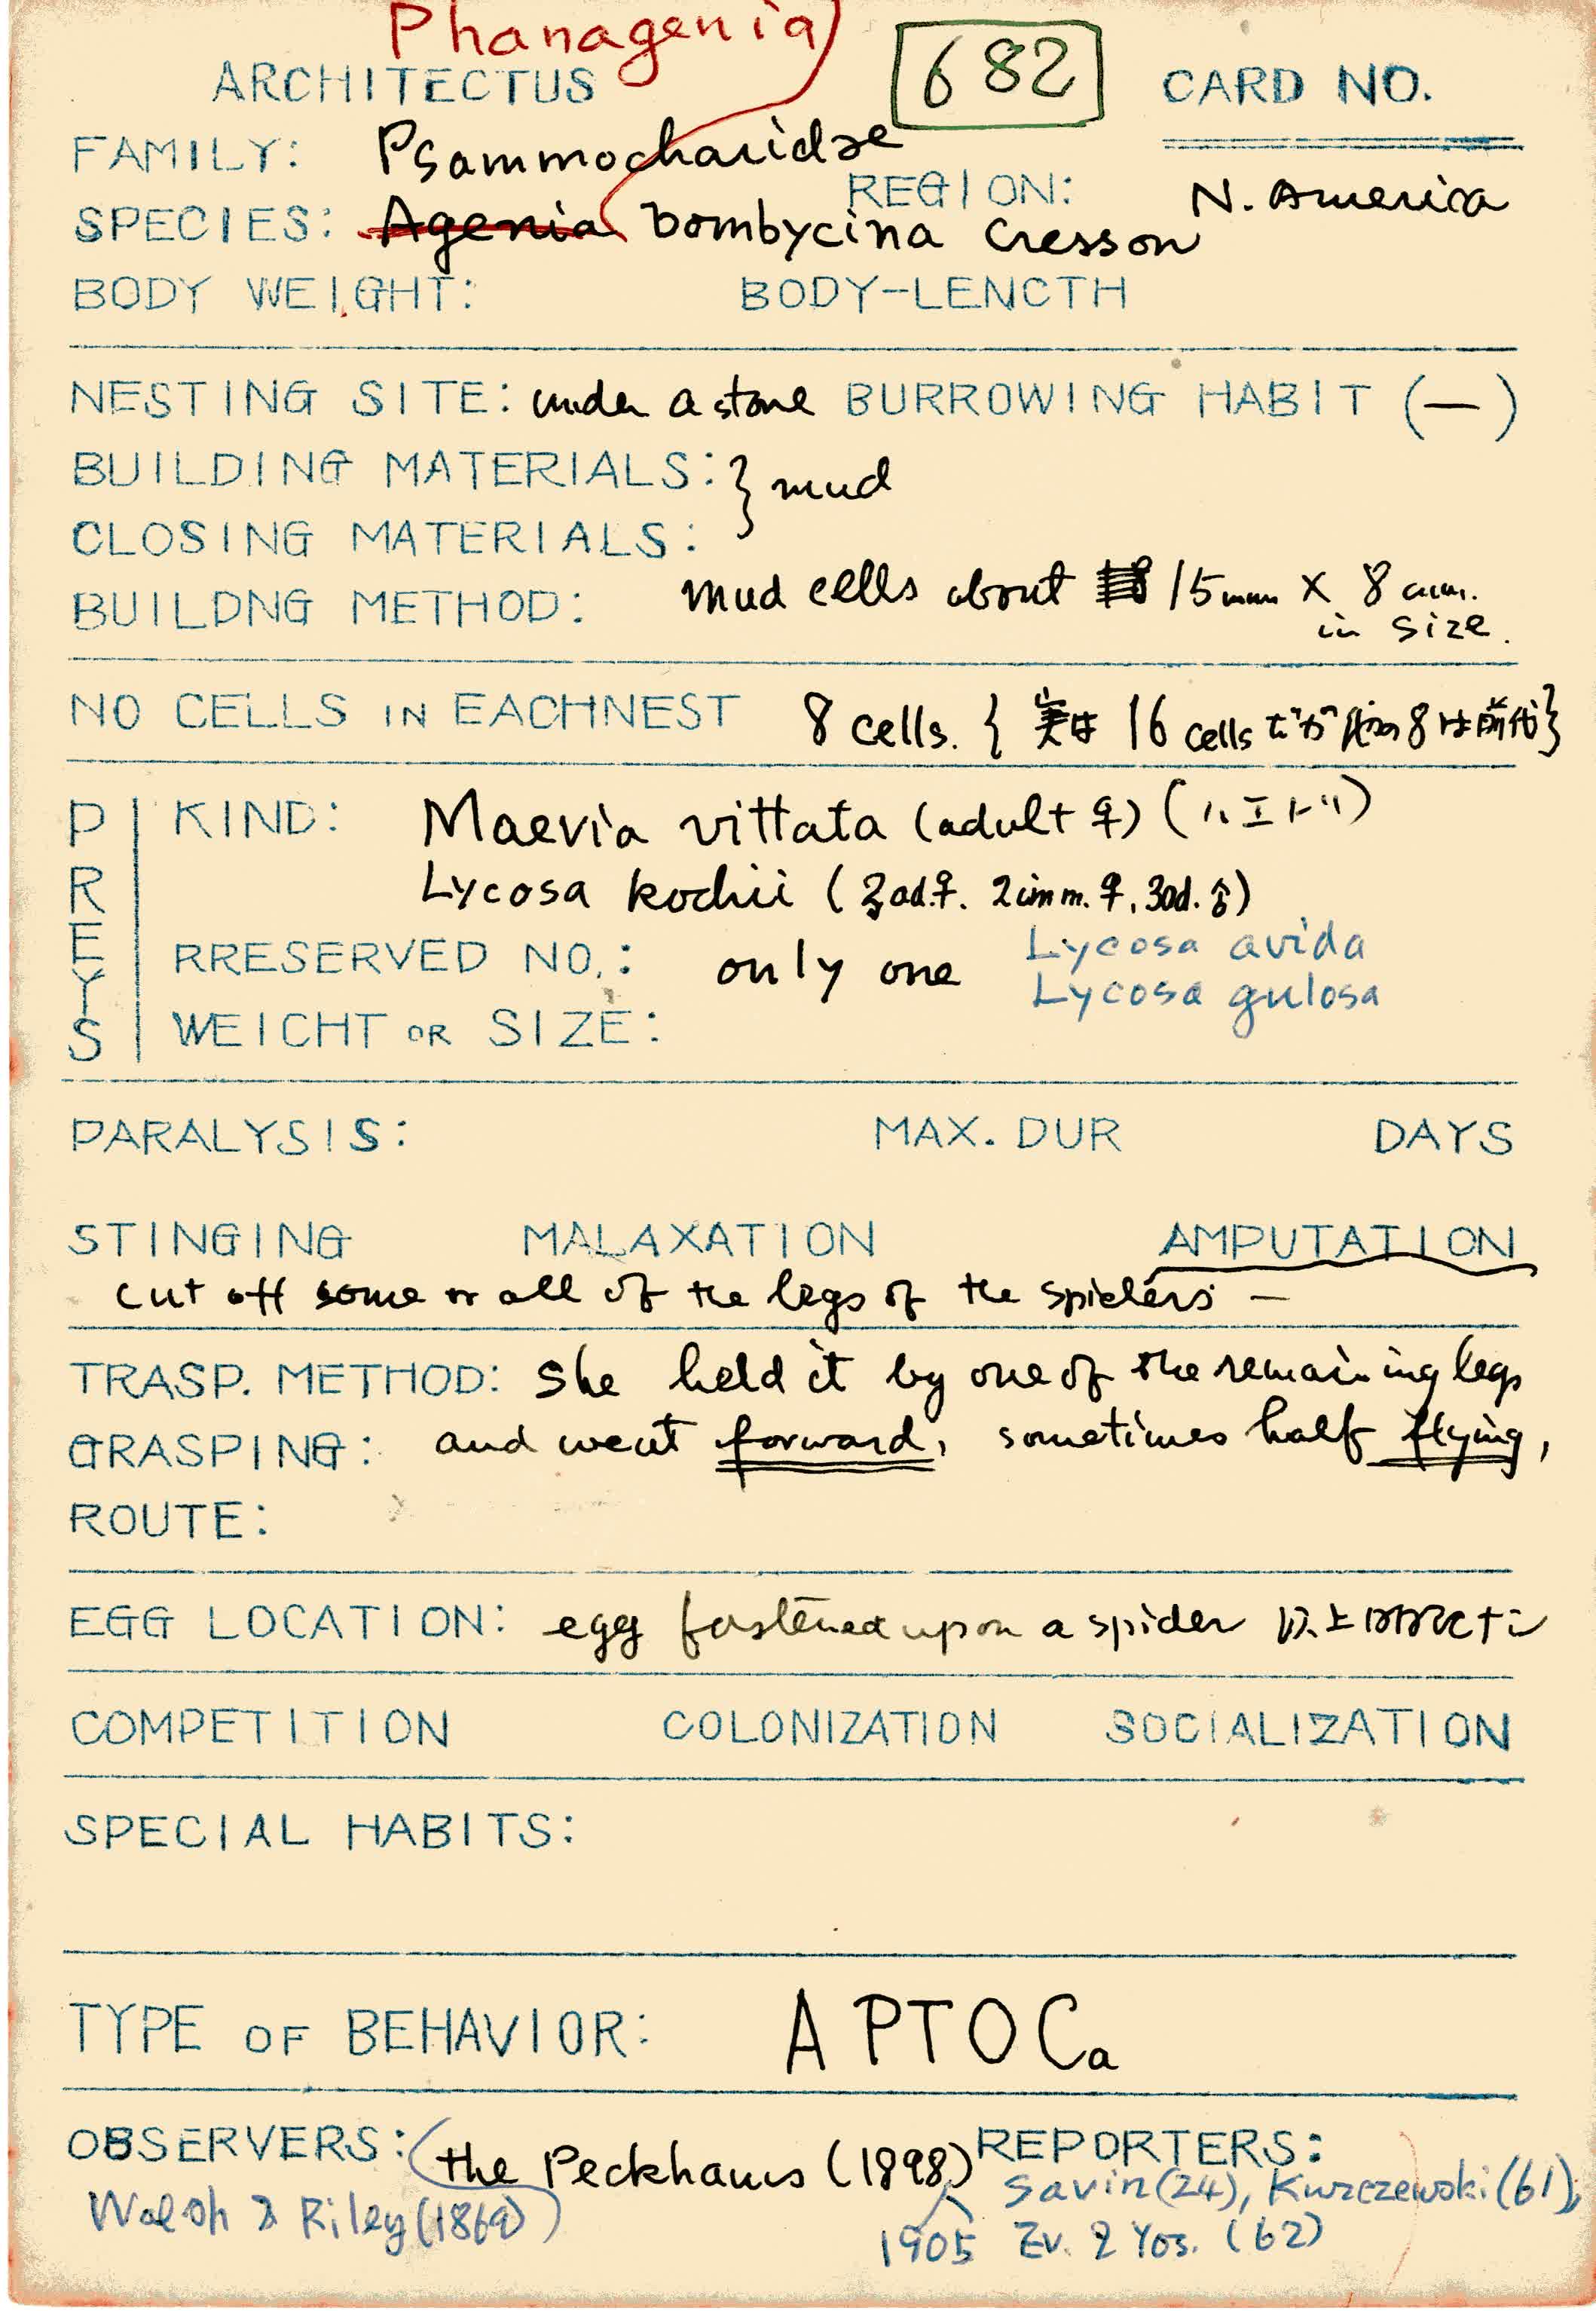 Phanagenia
ARCHITECTUS 682 CARD NO.
FAMILY: Psammocharidae
REGION: N. America
SPECIES: Agenia bombycina Cresson
BODY WEIGHT: BODY-LENCTH
NESTING SITE: under a stone BURROWING HABIT (—)
BUILDING MATERIALS: } mud
CLOSING MATERIALS:
BUILDNG METHOD: mud cells about 15mm × 8 mm.
in size.
NO CELLS IN EACHNEST 8 cells. { 実は 16 cells だが 他の 8 は前代}
PREYS
KIND: Maevia vittata (adult ♀) (ハエトリ)
Lycosa kochii (3ad.♀. 2imm.♀, 3ad.♂)
RRESERVED NO.: only one Lycosa avida
Lycosa gulosa
WEICHT OR SIZE:
PARALYSIS: MAX. DUR DAYS
STINGING MALAXATION AMPUTATION
cut off some or all of the legs of the spiders —
TRASP. METHOD: she held it by one of the remaining legs
GRASPING: and went forward, sometimes half flying,
ROUTE:
EGG LOCATION: egg fastened upon a spider 以上
COMPETITION COLONIZATION SOCIALIZATION
SPECIAL HABITS:
TYPE OF BEHAVIOR: APTOCa
OBSERVERS: (the Peckhams (1898) REPORTERS:
Walsh & Riley (1869)) 1905 Savin (24), Kurczewski (61),
Ev. & Yos. (62)